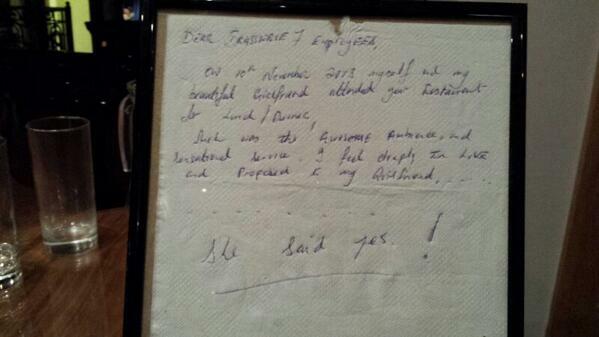 Dear Brasserie 7 Employees,
On 10th November 2013 myself and my
beautiful Girlfriend attended your Restaurant
for Lunch / Dinner,
Such was the Awesome Ambience, and
Sensational Service. I feel deeply In Love
and Proposed to my Girlfriend. . . . .
. . . . . .
She Said yes. !